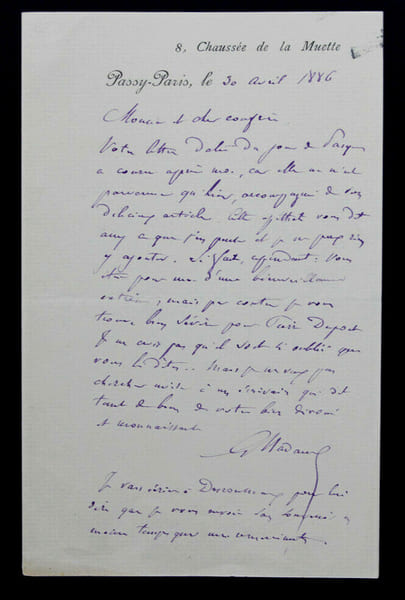 8, Chaussée de la Muette
Passy-Paris, le 30 avril 1886
Monsieur et cher confrère
Votre lettre datée du jour de Pâques
a couru après moi, car elle ne m'est
parvenue qu'hier, accompagnée de vos
délicieux article. Cette
assez ce que j'en pense et je ne puis rien
y ajouter. Si fait, cependant : vous
êtes pour moi d'une bienveillance
extrême ; mais par contre je vous
trouve bien sévère pour Pierre Dupont
Je ne crois pas qu'il soit si oublié que
vous le dites.. Mais je ne veux pas
chercher noise à un écrivain qui dit
tant de bien de votre bien dévoué
et reconnaissant
G Nadaud
Je vais écrire à pour lui
dire que je vous envoie
même temps que mes remerciements.